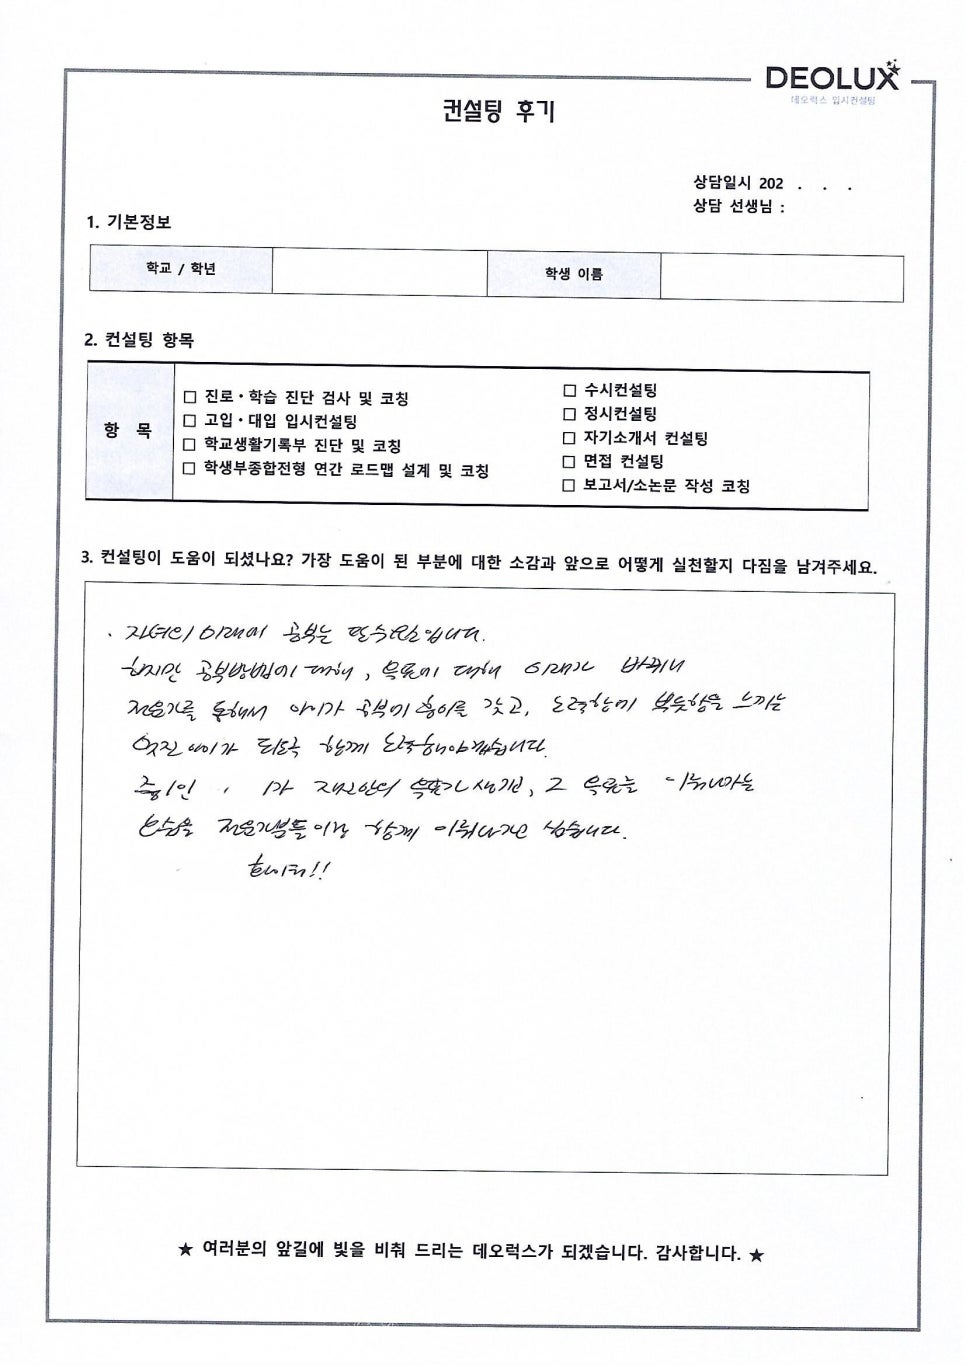 DEOLUX
데오럭스 입시컨설팅
컨설팅 후기
상담일시 202 . . .
상담 선생님 :
1. 기본정보
학교 / 학년
학생 이름
2. 컨설팅 항목
항 목
□ 진로·학습 진단 검사 및 코칭
□ 고입·대입 입시컨설팅
□ 학교생활기록부 진단 및 코칭
□ 학생부종합전형 연간 로드맵 설계 및 코칭
□ 수시컨설팅
□ 정시컨설팅
□ 자기소개서 컨설팅
□ 면접 컨설팅
□ 보고서/소논문 작성 코칭
3. 컨설팅이 도움이 되셨나요? 가장 도움이 된 부분에 대한 소감과 앞으로 어떻게 실천할지 다짐을 남겨주세요.
· 자녀의 미래에 공부는 필수입니다.
하지만 공부방법에 대해, 목표에 대해 미래가 바뀌니
전문가를 통해서 아이가 공부에 흥미를 갖고, 노력함에 뿌듯함을 느끼는
멋진 아이가 되도록 함께 노력해야겠습니다.
중1인 가 자신만의 목표가 생기고, 그 목표를 이뤄나가는
모습을 전문가분들이랑 함께 이뤄나가고 싶습니다.
화이팅!!
★ 여러분의 앞길에 빛을 비춰 드리는 데오럭스가 되겠습니다. 감사합니다. ★